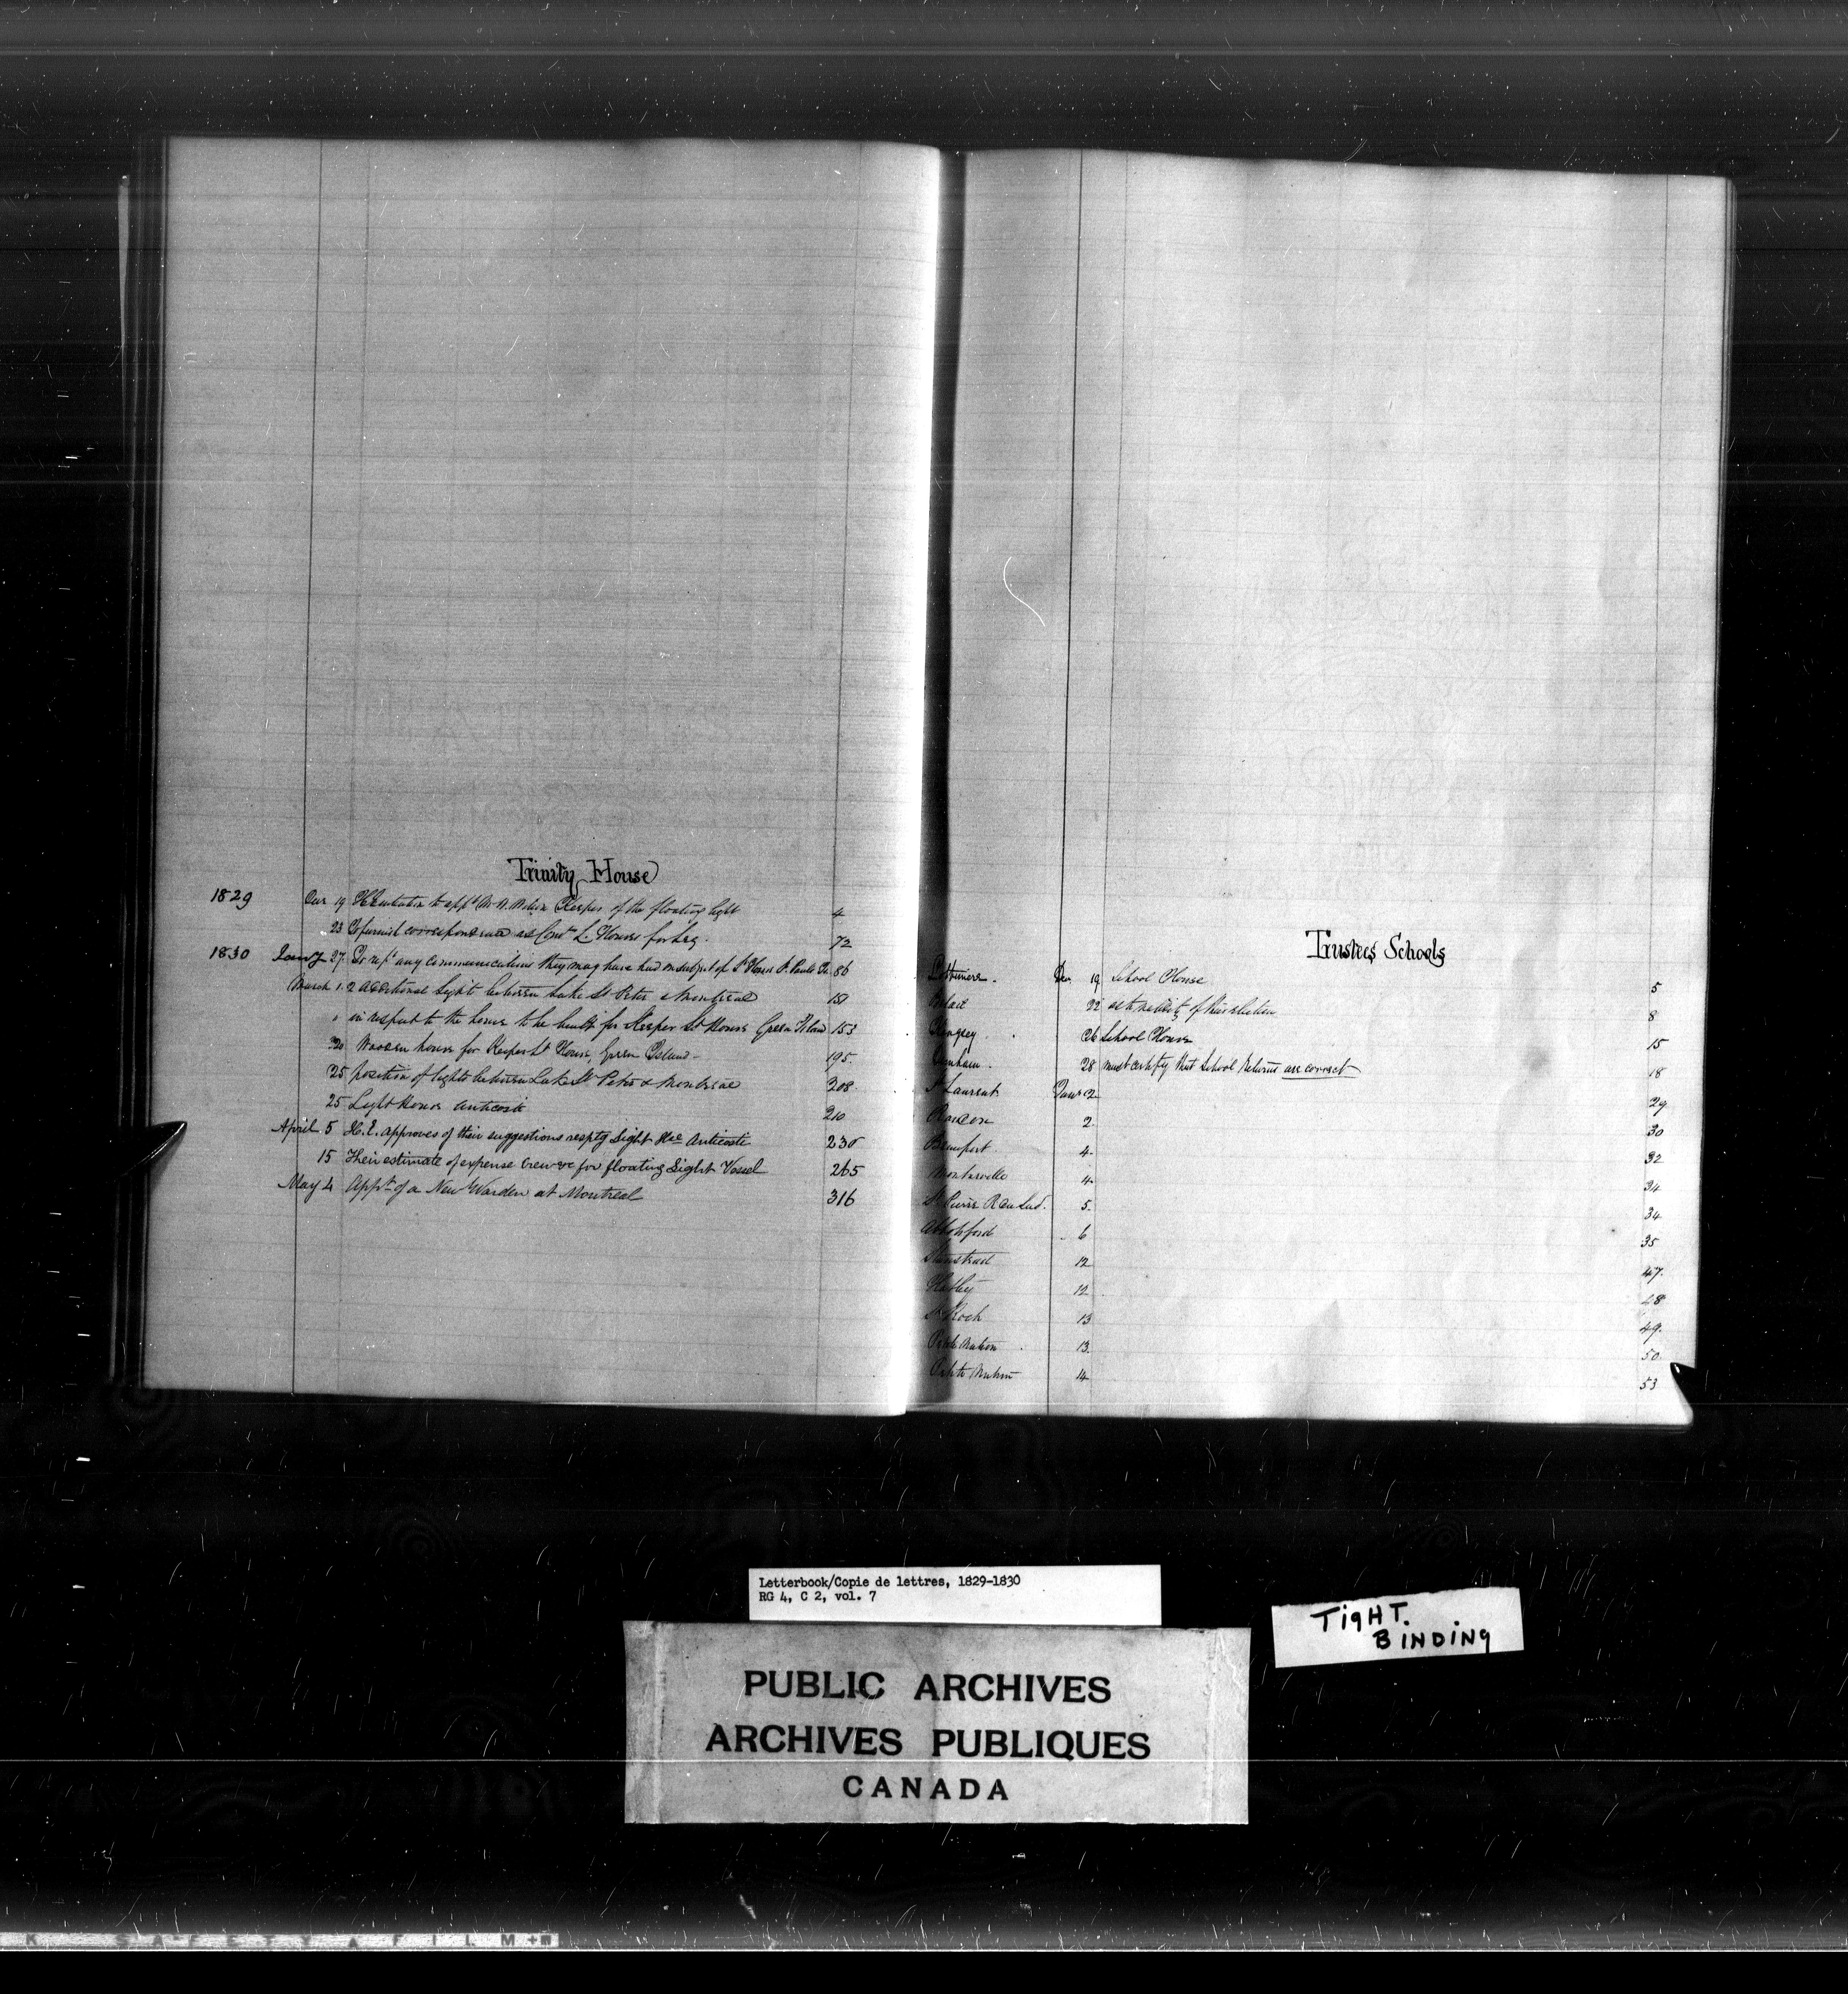 Trinity House
1829 Decr 19 to appt Mr Keeper of the floating light 4
23 To furnish correspondence Lt. Houses for Leg. 72
1830 Jany 27 To rept any communications they may have had on subject of Lt Houses St. Pauls 86
March 1. 2 additional Light between Lake St Peter & Montreal 151
" in respect to the house to be built for Keeper Lt House Green Island 153
20 Wooden house for Keeper Lt House, Green Island 195
25 position of lights between Lake St Peter & Montreal 208
25 Light House Anticosti 210
April 5 H.E. approves of their suggestions respectg Light Hse Anticosti 230
15 Their estimate of expense Crew &c for floating Light Vessel 265
May 4 Appt of a New Warden at Montreal 316
Trustees Schools
Decr 19 School House 5
22 as to validity of their election 8
Kingsey 26 School House 15
28 must certify that School Returns are correct 18
St Laurent Jany 2 29
Rawdon 2 30
Beauport 4 32
4 34
St Pierre R du Sud. 5 34
Abbotsford 6 35
Stanstead 12 47
Hatley 12 48
St Roch 13 49
Petite Nation 13 50
Petite Nation 14 53
Letterbook/Copie de lettres, 1829-1830
RG 4, C 2, vol. 7
TIGHT.
BINDING
PUBLIC ARCHIVES
ARCHIVES PUBLIQUES
CANADA
K SAFETY FILM